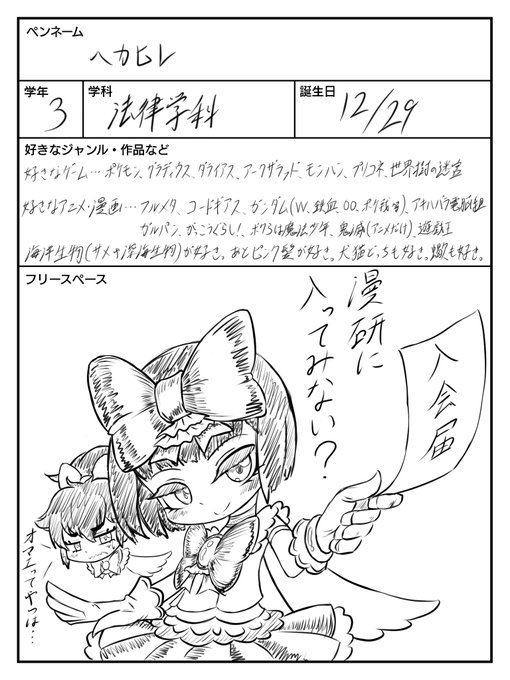 ペンネーム
ヘカヒレ
学年
3
学科
法律学科
誕生日
12/29
好きなジャンル・作品など
好きなゲーム…ポケモン、グラディウス、ダライアス、アークザラッド、モンハン、プリコネ、世界樹の迷宮
好きなアニメ・漫画…フルメタ、コードギアス、ガンダム(W、鉄血、00、ポケ戦等)、アキハバラ電脳組
ガルパン、がっこうぐらし!、ボクらは魔法少年、鬼滅(アニメだけ)、遊戯王
海洋生物(サメや深海生物)が好き。あとピンク髪が好き。犬猫どっちも好き。蠍も好き。
フリースペース
漫研に
入ってみない?
入会届
オマエってやつは…